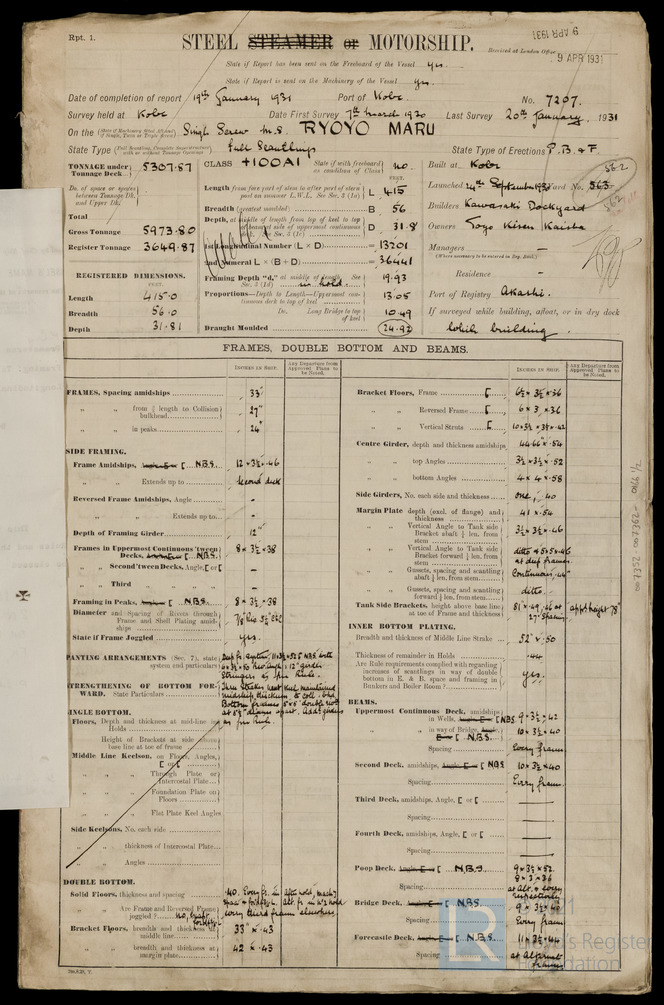 Rpt. 1.
STEEL STEAMER or MOTORSHIP.
Received at London Office
9 APR 1931
9 APR 1931
State if Report has been sent on the Freeboard of the Vessel yes.
State if Report is sent on the Machinery of the Vessel yes.
Date of completion of report 19th January 1931 Port of Kobe. No. 7207.
Survey held at Kobe Date First Survey 7th March 1930 Last Survey 20th January, 1931
On the Single Screw M.S. RYOYO MARU
State Type Full Scantlings State Type of Erections P.B. & F
TONNAGE under Tonnage Deck 5307.87
CLASS +100A1 State if with freeboard as condition of Class no.
Built at Kobe
Launched 14th September 1930 Yard No. 563
562
Builders Kawasaki Dockyard
Owners Toyo Kisen Kaisha
Managers —
Residence —
Port of Registry Akashi.
If surveyed while building, afloat, or in dry dock
while building.
Do. of space or spaces between Tonnage Dk. and Upper Dk.
Total
Gross Tonnage 5973.80
Register Tonnage 3649.87
REGISTERED DIMENSIONS.
FEET.
Length 415.0
Breadth 56.0
Depth 31.81
Length from fore part of stem to after part of stern post on summer L.W.L. See Sec. 2 (1a) L 415
Breadth (greatest moulded) B 56
D 31.8
1st Longitudinal Number (L × D) = 13201
2nd Numeral L × (B + D) = 36441
Framing Depth "d," at middle of length. See Sec. 3 (1d) in hold. 19.93
Proportions—Depth to Length—Uppermost continuous deck to top of keel 13.05
Do. Long Bridge to top of keel 10.49
Draught Moulded 24.92
FRAMES, DOUBLE BOTTOM AND BEAMS.
INCHES IN SHIP.
Any Departure from Approved Plans to be Noted.
FRAMES, Spacing amidships 33"
" " from ⅕ length to Collision bulkhead 27"
" " in peaks 24"
SIDE FRAMING.
Frame Amidships, Angle E or [ N.B.S. 12 × 3½ × .46
" " Extends up to second deck
Reversed Frame Amidships, Angle -
" " Extends up to -
Depth of Framing Girder 12"
Frames in Uppermost Continuous 'tween Decks, N.B.S. 8 × 3½ × .38
" Second 'tween Decks, Angle, [ or [ -
" Third " " " " -
Framing in Peaks, N.B.S. 8 × 3½ × .38
Diameter and Spacing of Rivets through Frame and Shell Plating amidships
State if Frame Joggled yes.
PANTING ARRANGEMENTS (Sec. 7), state system and particulars
STRENGTHENING OF BOTTOM FORWARD. State Particulars
SINGLE BOTTOM.
Floors, Depth and thickness at mid-line in Holds
Height of Brackets at side above base line at toe of frame
Middle Line Keelson, on Floors, Angles, [ or [
" " Through Plate or Intercostal Plate
" " Foundation Plate on Floors
" " Flat Plate Keel Angles
Side Keelsons, No. each side
" " thickness of Intercostal Plate
" " Angles
DOUBLE BOTTOM.
Solid Floors, thickness and spacing
Are Frame and Reversed Frame joggled?
Bracket Floors, breadth and thickness at middle line 33" × .43
" " breadth and thickness at margin plate 42 × .43
Bracket Floors, Frame [ 6½ × 3½ × .36
" " Reversed Frame [ 6 × 3 × .36
" " Vertical Struts [ 10 × 3½ × 3½ × .42
Centre Girder, depth and thickness amidships
" " top Angles 3½ × 3½ × .52
" " bottom Angles 4 × 4 × .58
Side Girders, No. each side and thickness one, .40
Margin Plate depth (excl. of flange) and thickness 41 × .54
" " Vertical Angle to Tank side Bracket abaft ¼ len. from stem 3½ × 3½ × .46
" " Vertical Angle to Tank side Bracket forward ¼ len. from stem ditto & 5 × 5 × .46 at deep frames
" " Gussets, spacing and scantling abaft ¼ len. from stem Continuous .44
" " Gussets, spacing and scantling forward ¼ len. from stem ditto.
Tank Side Brackets, height above base line at toe of Frame and thickness
INNER BOTTOM PLATING.
Breadth and thickness of Middle Line Strake 52" × .50
Thickness of remainder in Holds .44
Are Rule requirements complied with regarding increases of scantlings in way of double bottom in E. & B. space and framing in Bunkers and Boiler Room? yes.
BEAMS.
Uppermost Continuous Deck, amidships in Wells, N.B.S. 9 × 3½ × .42
" " in way of Bridge, N.B.S. 10 × 3½ × .40
Spacing Every frame
Second Deck, amidships, N.B.S. 10 × 3½ × .40
Spacing Every frame
Third Deck, amidships, Angle, [ or [ —
Spacing —
Fourth Deck, amidships, Angle, [ or [ —
Spacing —
Poop Deck, N.B.S. 9 × 3½ × .52
8 × 3 × .36
Spacing at Alt. & every respectively
Bridge Deck, N.B.S. 9 × 3½ × .40
Spacing Every frame
Forecastle Deck, N.B.S. 11 × 3½ × .44
Spacing at Alternate frames
Lloyd's Register
Foundation